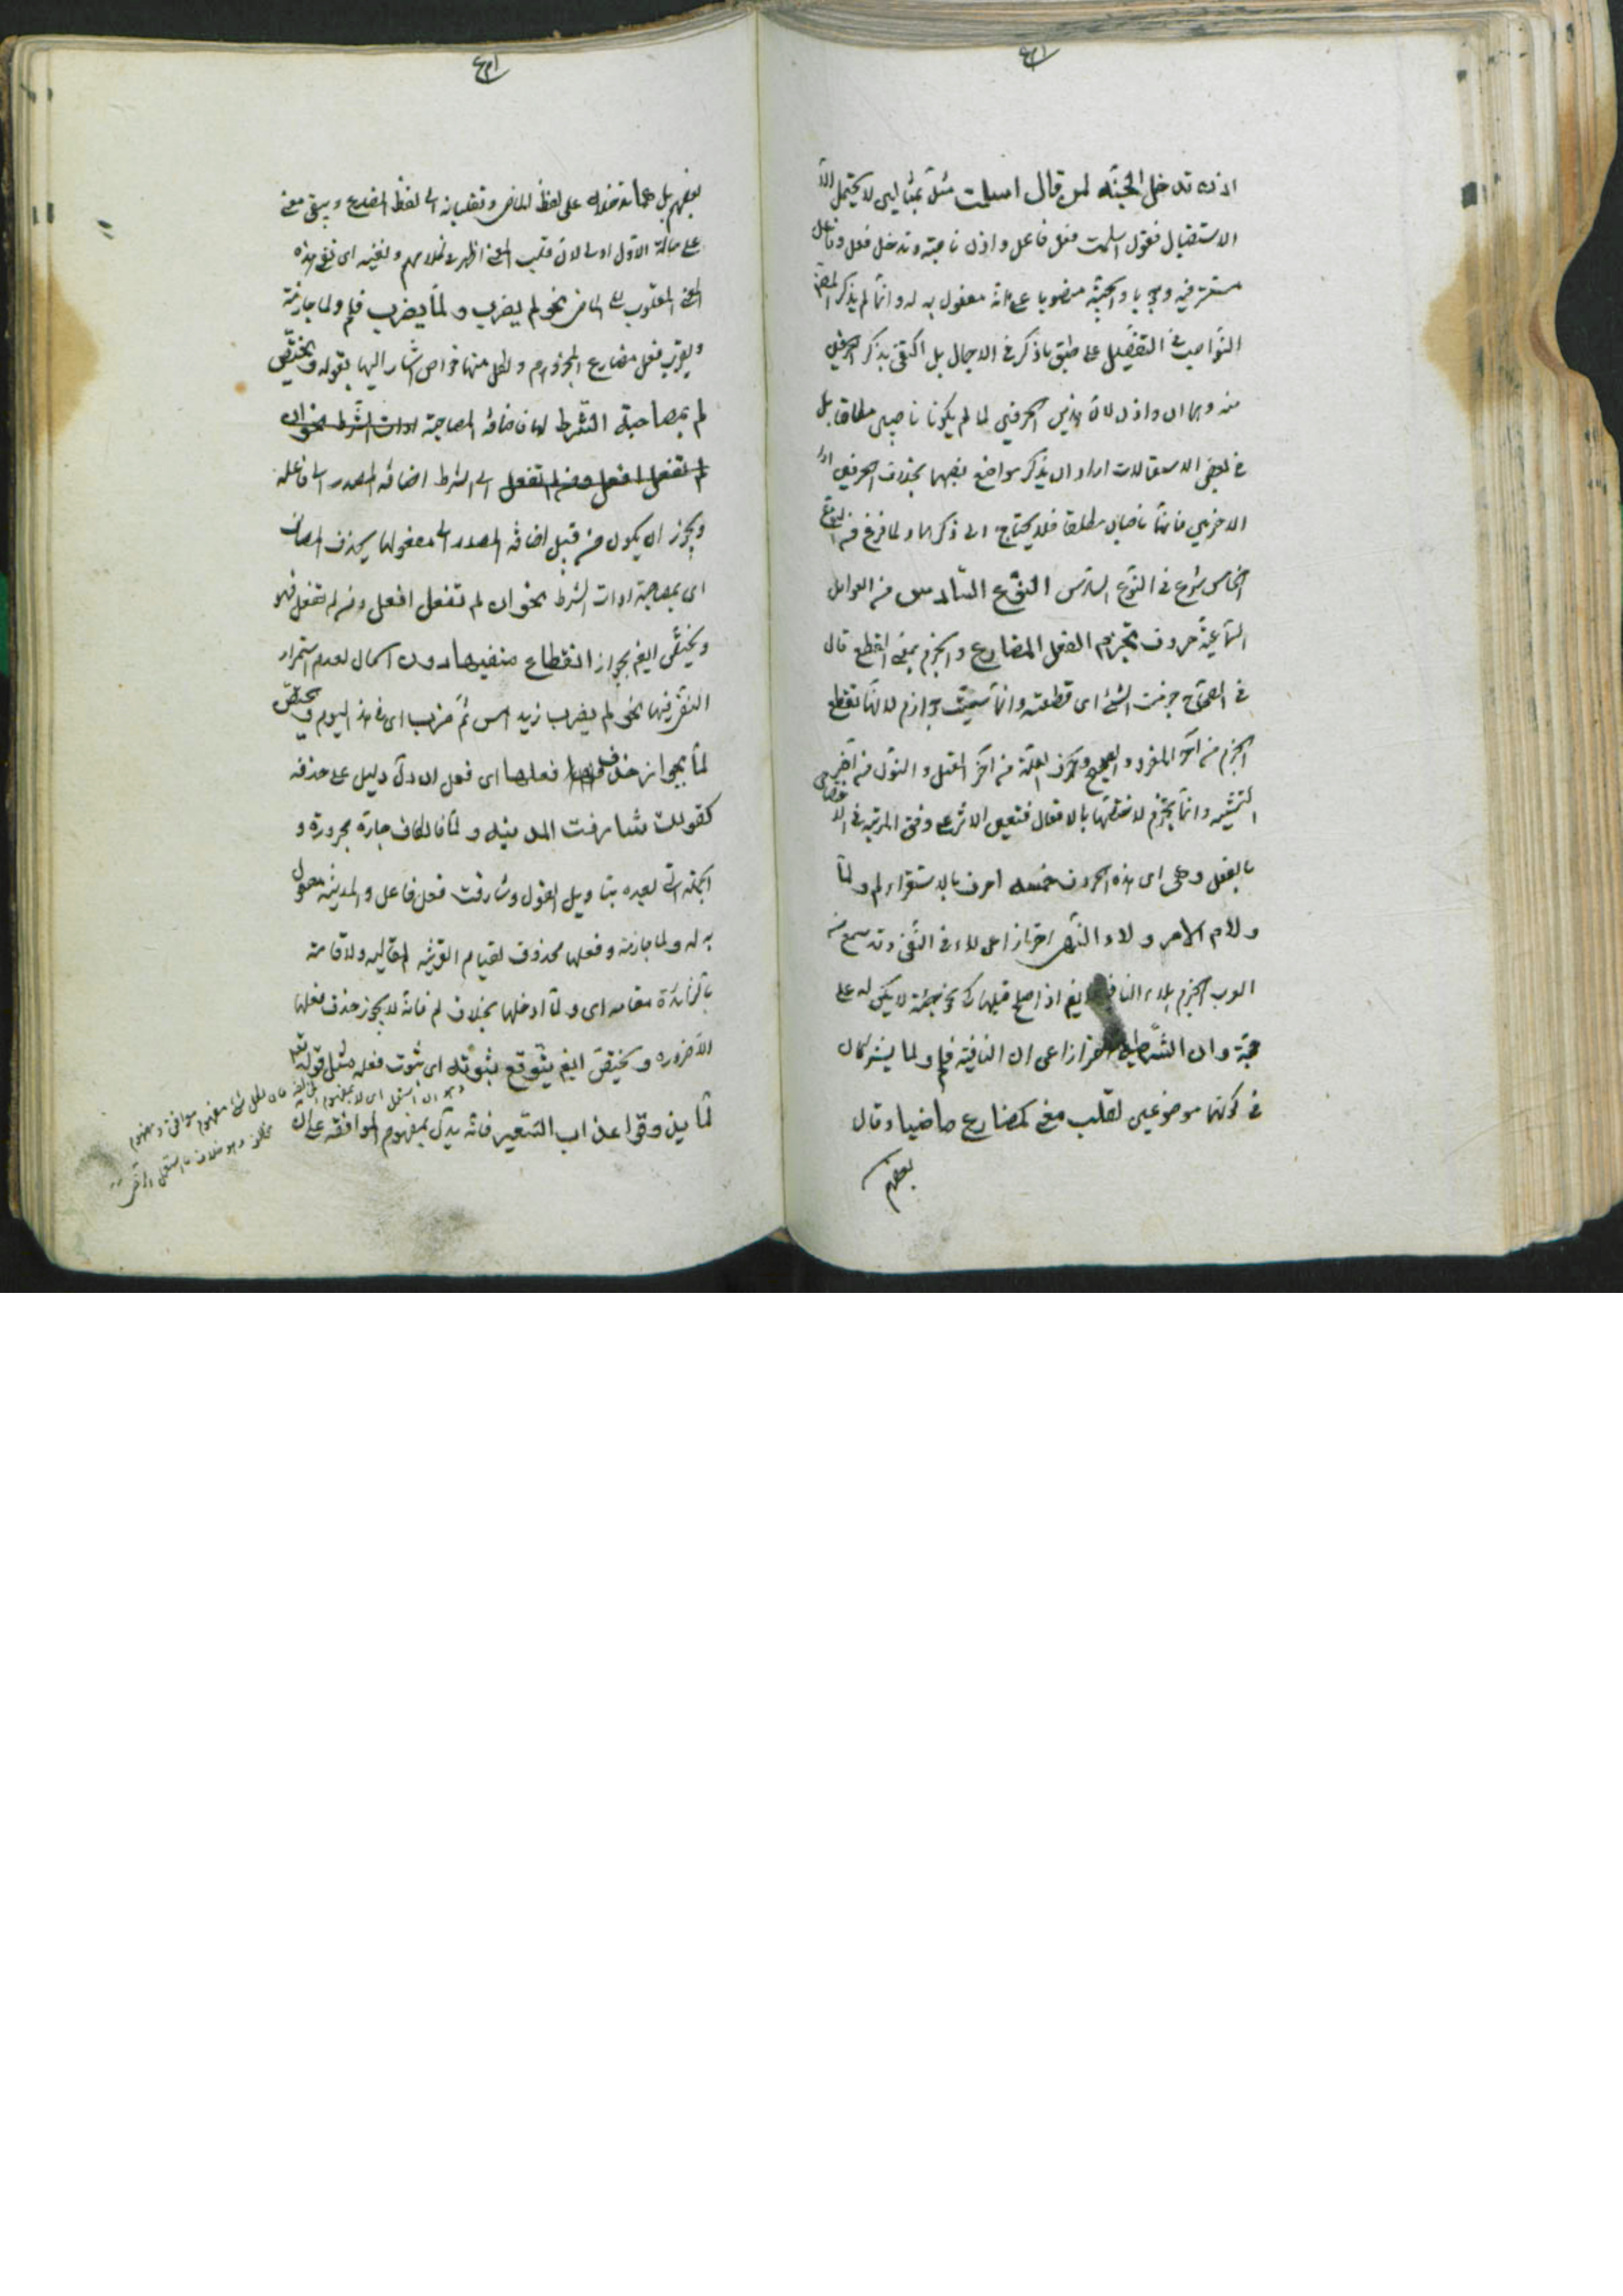 اذن تدخل الجنة لمن قال اسلمت مثلا بمثالين لا يحتمل الا
الاستقبال فقول اسلمت فعل فاعل واذن ناصبة وتدخل فعل وفاعل
مستتر فيه والجنة منصوبا على انه مفعول به له وانما لم يذكر المص
النواصب في التفصيل على طبق ما ذكر في الاجمال بل اكتفى بذكر الحرفين
منه وهما ان واذن لان هذين الحرفين لما لم يكونا ناصبين مطلقا بل
في بعض الاستعمالات اراد ان يذكر مواضع نصبهما بخلاف الحرفين
الاخرين فانهما ناصبان مطلقا فلا يحتاج الى ذكرهما ولما فرغ من النوع
الخامس شرع في النوع السادس النوع السادس من العوامل
السماعية حروف تجزم الفعل المضارع والجزم بمعنى القطع قال
في الصحاح جزمت الشئ اى قطعته وانما سميت جوازم لانها تقطع
الجزم من آخر المفرد الصحيح وحرف العلة من آخر المعتل والنون من آخر
التثنية وانما يجزم لاختصاصها بالافعال فتعين الاثر على وفق المرتبة في الاختصاص
بالفعل وهى اى هذه الحروف خمسة احرف بالاستقراء لم ولما
ولام الامر ولاء النهى احترازا عن لاء فى النفى وقد سمع من
العرب الجزم بلاء النافية ايض اذا صلح قبلها كى نحو جئته لا يكن له على
حجة وان الشرطية احترازا عن ان النافية فلم ولما يشتركان
في كونهما موضوعين لقلب معنى المضارع ماضيا وقال
بعضهم
بعضهم بل هما تدخلان على لفظ الماضى وتقلبانه الى لفظ المضارع ويبقى معنى
على حاله الاول اولى لان قلب المعنى اظهر في كلامهم ونفيه اى نفى هذه
المعنى المقلوب الى الماضى نحو لم يضرب ولما يضرب فلم ولما جازمة
ويضرب فعل مضارع المجزوم ولكل منهما خواص اشار اليها بقوله ويختص
لم بمصاحبة الشرط اضافة المصاحبة ادات الشرط نحو ان
لم تفعل افعل ومن لم تفعل الى الشرط اضافة المصدر الى فاعله
ويجوز ان يكون من قبيل اضافة المصدر الى مفعولها بحذف المضاف
اى بمصاحبة ادات الشرط نحو ان لم تفعل افعل ومن لم تفعل فهو
ويختص ايض بجواز انقطاع منفيها دون الحال لعدم استمرار
النفى فيها نحو لم يضرب زيد امس ثم ضرب اى فى هذا اليوم ويختص
لما بجواز حذف فعلها اى فعل ان دل دليل على حذفه
كقولك شارفت المدينة ولما فالكاف جارة مجرورة و
الجملة التى بعده بتاويل القول وشارفت فعل فاعل والمدينة مفعول
به له ولما جازمة وفعلها محذوف لقيام القرينة المقالية ولاقامته
بالفائدة مقامه اى ولما ادخلها بخلاف لم فانه لا يجوز حذف فعلها
الا ضرورة ويختص ايض بتوقع ثبوته اى ثبوت فعله مثل قوله تع
لما يذوقوا عذاب السعير فانه يدل بمفهوم الموافقة على ان